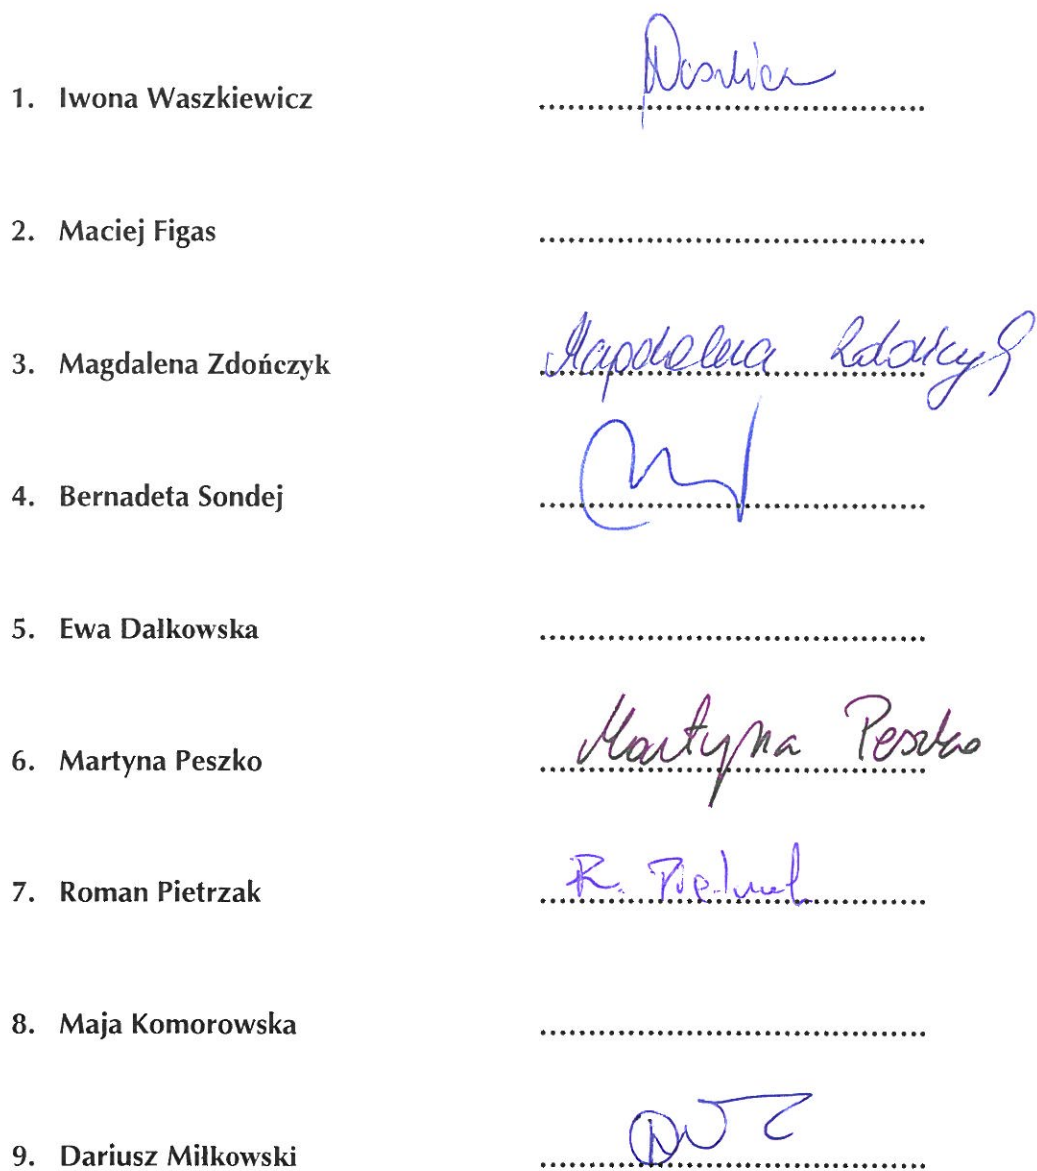 1. Iwona Waszkiewicz ........................................
2. Maciej Figas ........................................
3. Magdalena Zdończyk Magdalena Zdończyk
4. Bernadeta Sondej ........................................
5. Ewa Dałkowska ........................................
6. Martyna Peszko Martyna Peszko
7. Roman Pietrzak R. Pietrzak
8. Maja Komorowska ........................................
9. Dariusz Miłkowski ........................................